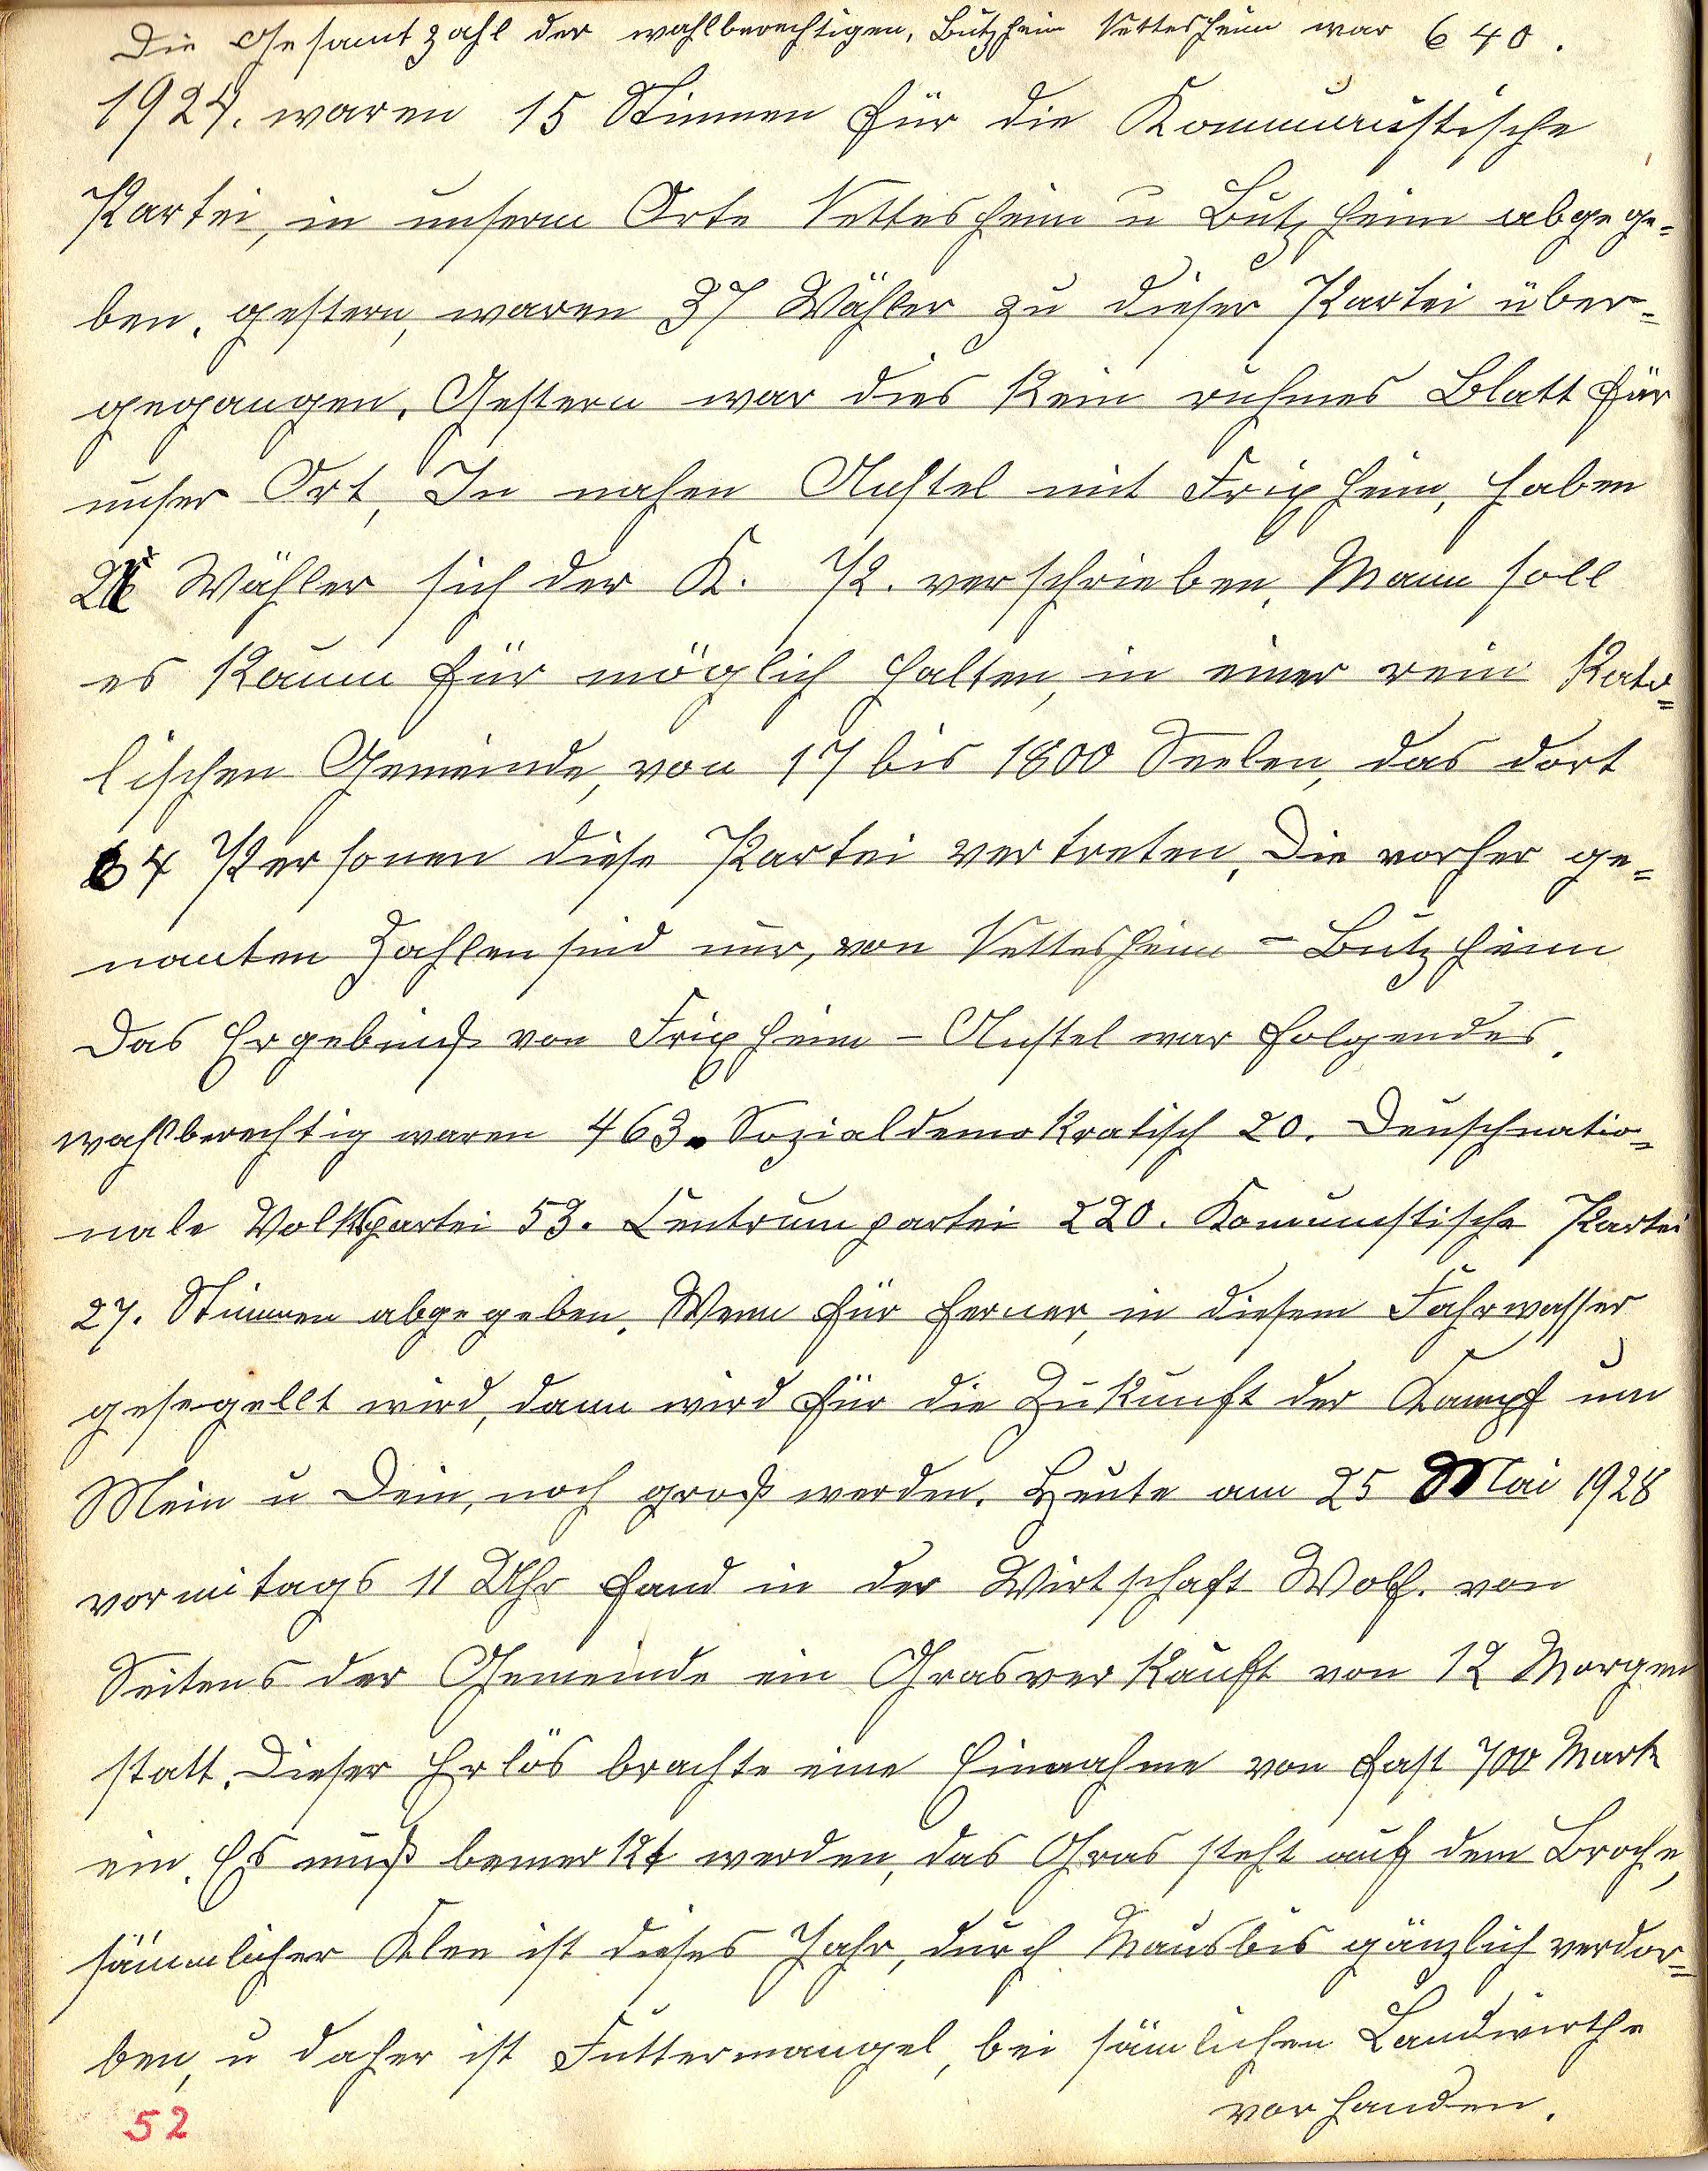 Die Gesamtzahl der wahlberechtigen, Butzheim Nettesheim war 640.
1924. waren 15 Stimmen für die Kommunistische
Partei, in unserm Orte Nettesheim u Butzheim abgege=
ben. gestern, waren 37 Wähler zu dieser Partei über=
gegangen. Gestern war dies kein ruhmes Blatt für
unser Ort, In nahen Anstel mit Frixheim, haben
Wähler sich der K. P. verschrieben. Mann soll
es kaum für möglich halten, in einer rein Kato=
lischen Gemeinde, von 17 bis 1800 Seelen, das dort
64 Personen diese Partei vertreten, Die vorher ge=
nanten Zahlen sind nur, von Nettesheim = Butzheim
Das Ergebniß von Frixheim - Anstel war folgendes.
wahlberechtig waren 463. Sozialdemokratisch 20. Deuschnatio=
nale Volkspartei 53. Centrumpartei 220. Komunistische Partei
27. Stimmen abgegeben. Wenn für ferner, in diesem Fahrwasser
gesegellt wird, dann wird für die Zukunft der Kampf um
Mein u Dein, noch groß werden. Heute am 25 Mai 1928
vormitags 11 Uhr fand in der Wirtschaft Wolf. von
Seitens der Gemeinde ein Grasverkauft von 12 Morgen
statt. Dieser Erlös brachte eine Einnahme von fast 700 Mark
ein. Es muß bemerkt werden, das Gras steht auf dem Broche,
sämmlicher Klee ist dieses Jahr, durch Mausbis gänzlich verdor=
ben, u daher ist Futtermangel, bei sämlichen Landwirthe
vorhanden.
52